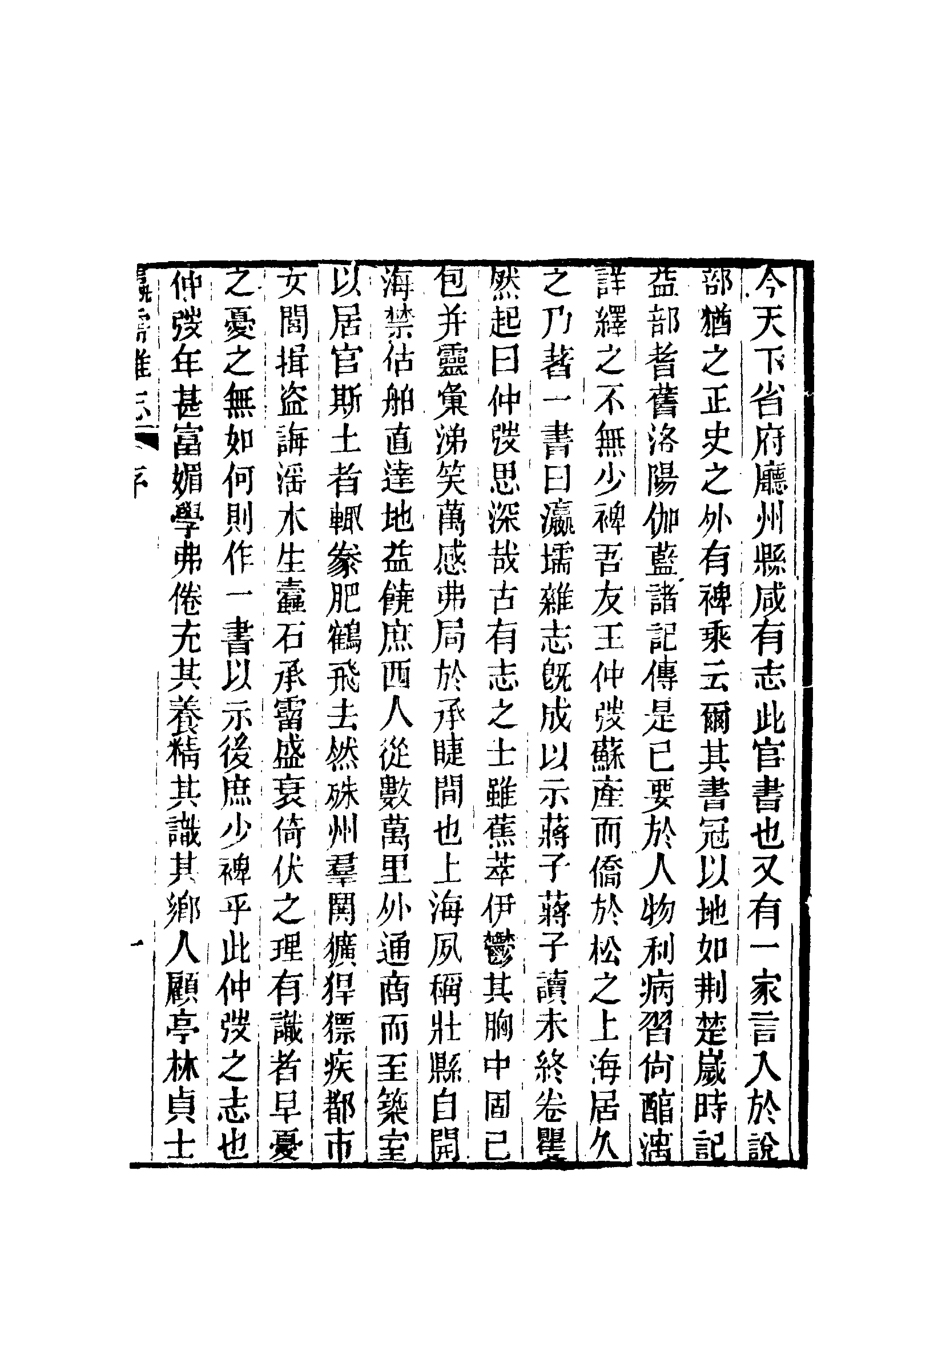 今天下省府廳州縣咸有志此官書也又有一家言入於說
部猶之正史之外有裨乘云爾其書冠以地如荆楚歲時記
益部耆舊洛陽伽藍諸記傳是已要於人物利病習尙醕漓
詳繹之不無少裨吾友王仲弢蘇產而僑於松之上海居久
之乃著一書曰瀛壖雜志旣成以示蔣子蔣子讀未終卷瞿
然起曰仲弢思深哉古有志之士雖蕉萃伊鬱其胸中固已
包幷靈彙涕笑萬感弗局於承睫間也上海夙稱壯縣自開
海禁估舶直達地益饒庶西人從數萬里外通商而至築室
以居官斯土者輒豢肥鶴飛去然殊州羣閧獷猂獟疾都市
女閭揖盜誨淫木生蠹石承霤盛衰倚伏之理有識者早憂
之憂之無如何則作一書以示後庶少裨乎此仲弢之志也
仲弢年甚富媚學弗倦充其養精其識其鄉人顧亭林貞士
瀛壖雜志 序 一